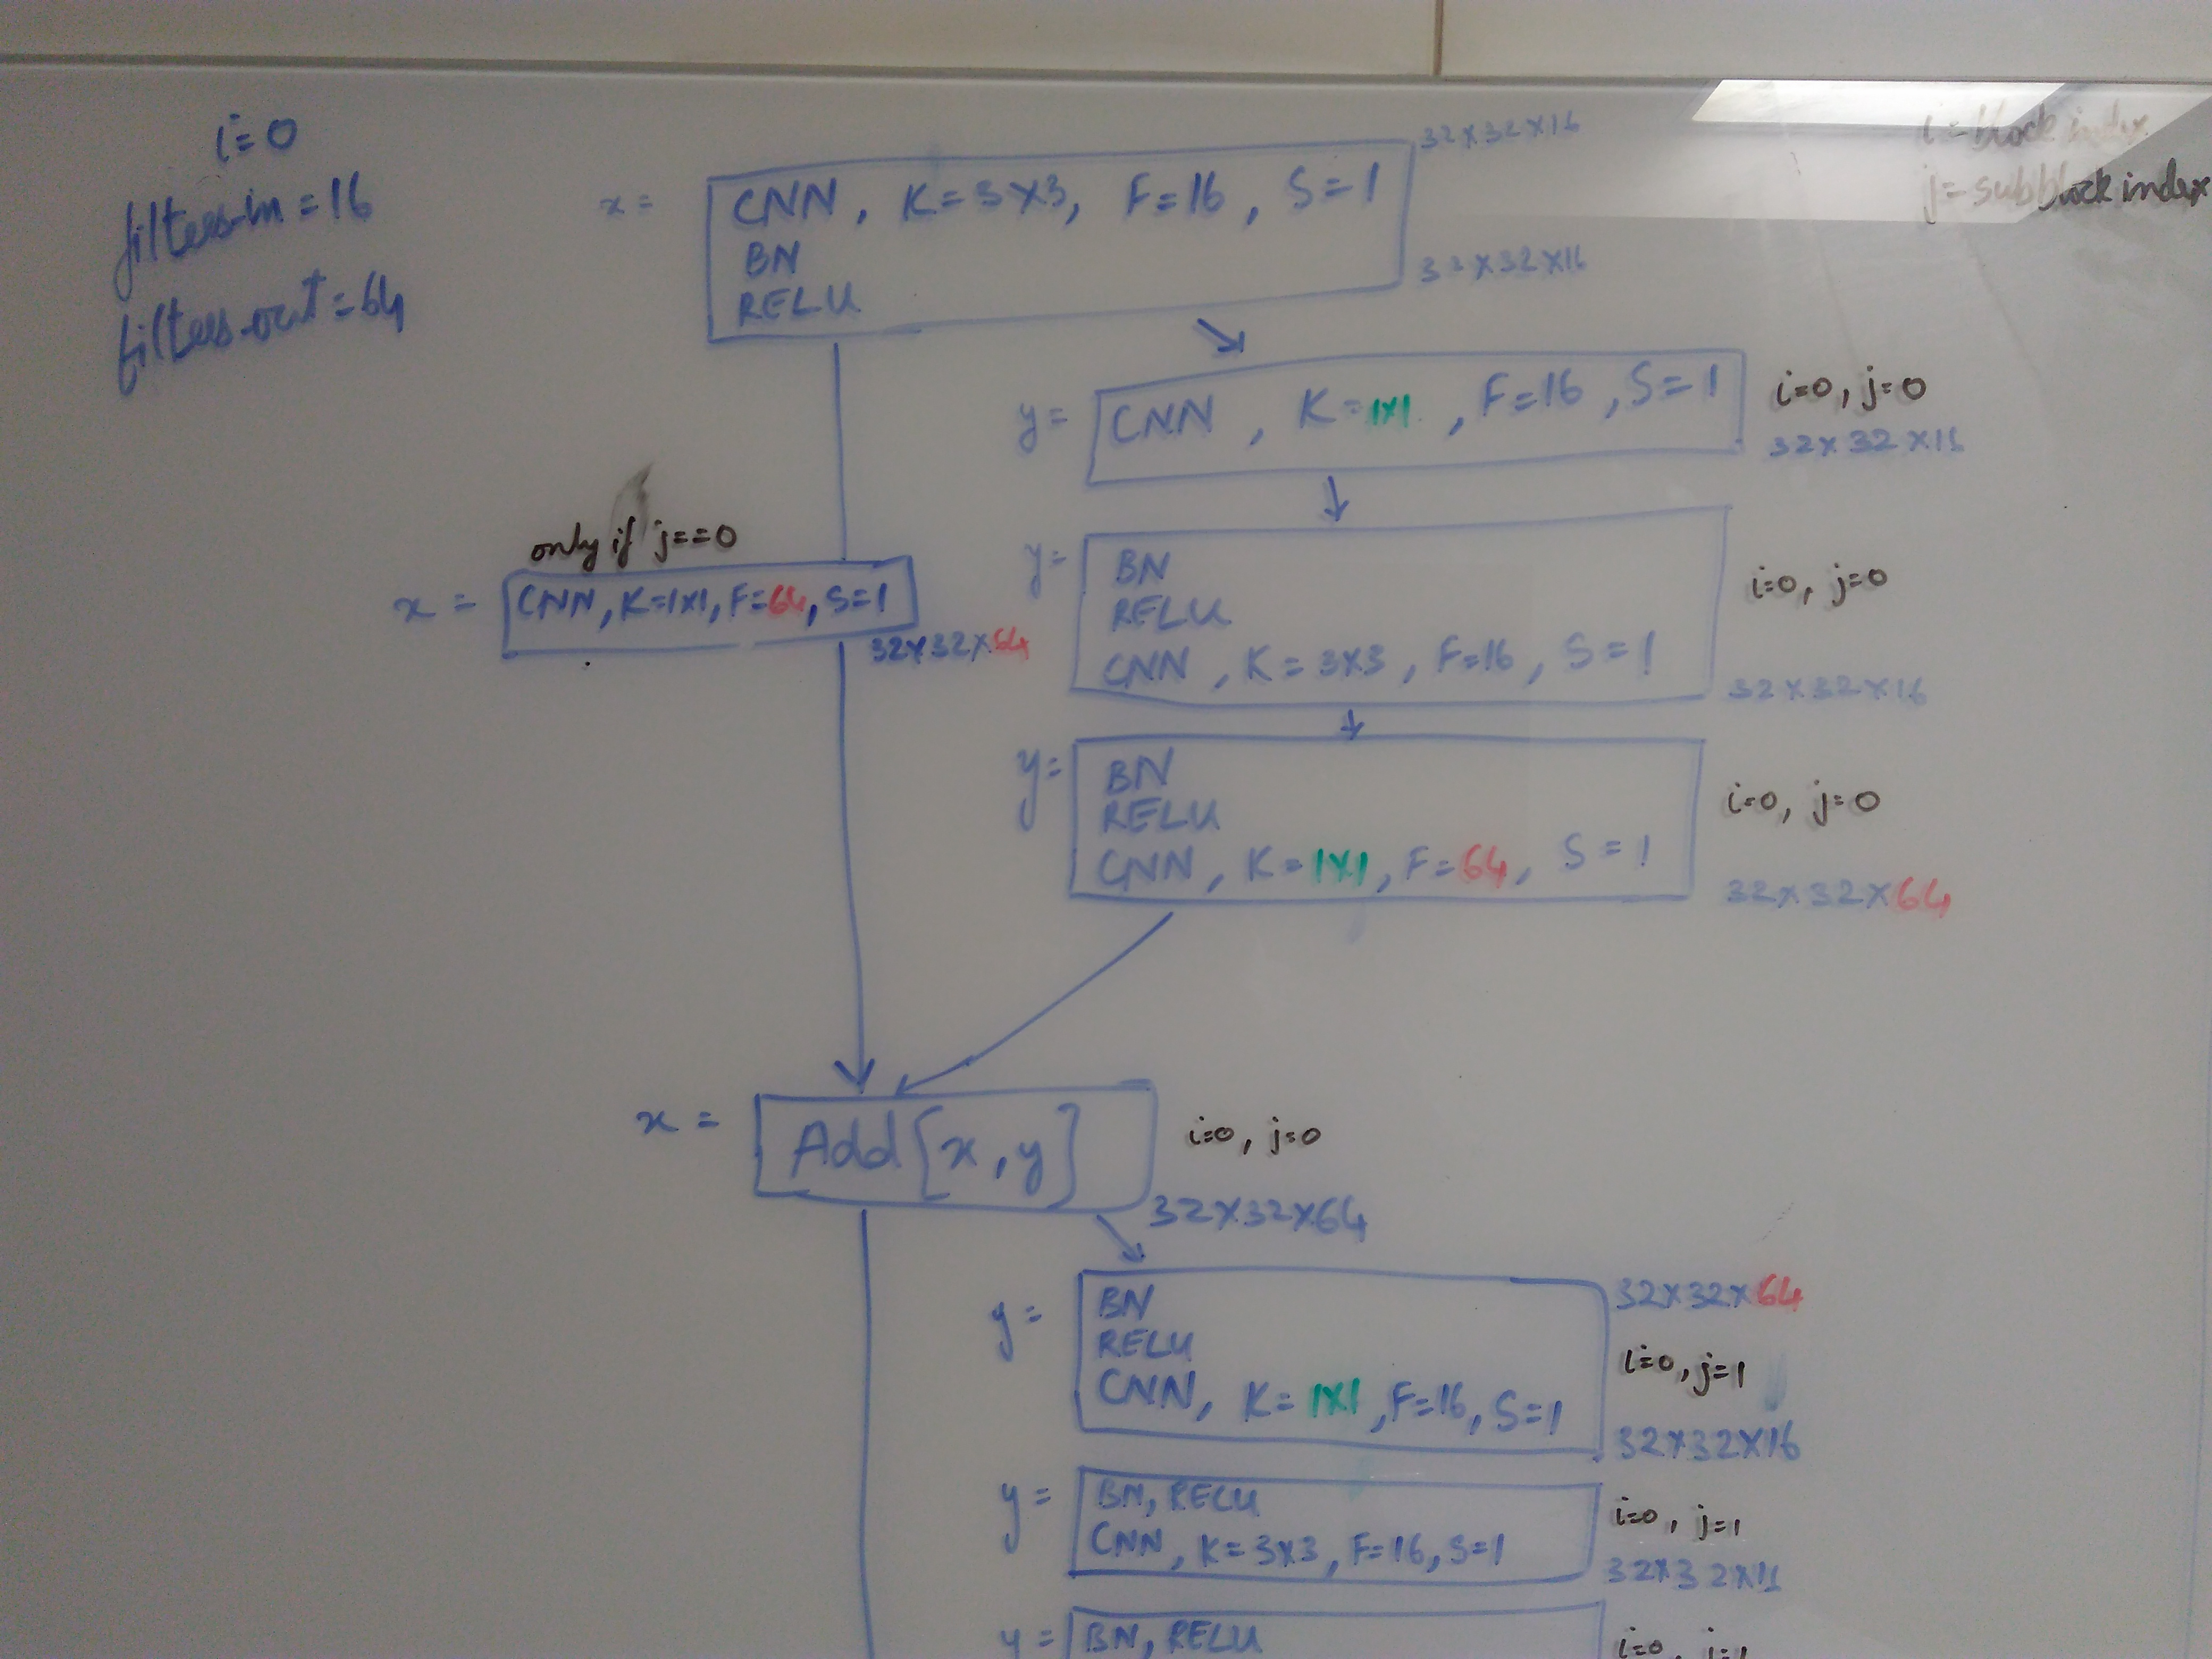 i=0
filters-in=16
filters-out=64
i=block index
j=subblock index
32×32×16
x=
CNN, K=3×3, F=16, S=1
BN
RELU
32×32×16
y=
CNN, K=1×1, F=16, S=1
i=0, j=0
32×32×16
only if j==0
x=
CNN, K=1×1, F=64, S=1
32×32×64
y=
BN
RELU
CNN, K=3×3, F=16, S=1
i=0, j=0
32×32×16
y=
BN
RELU
CNN, K=1×1, F=64, S=1
i=0, j=0
32×32×64
x=
Add[x,y]
i=0, j=0
32×32×64
y=
BN
RELU
CNN, K=1×1, F=16, S=1
32×32×64
i=0, j=1
32×32×16
y=
BN, RELU
CNN, K=3×3, F=16, S=1
i=0, j=1
32×32×16
y=
BN, RELU
i=0, j=1